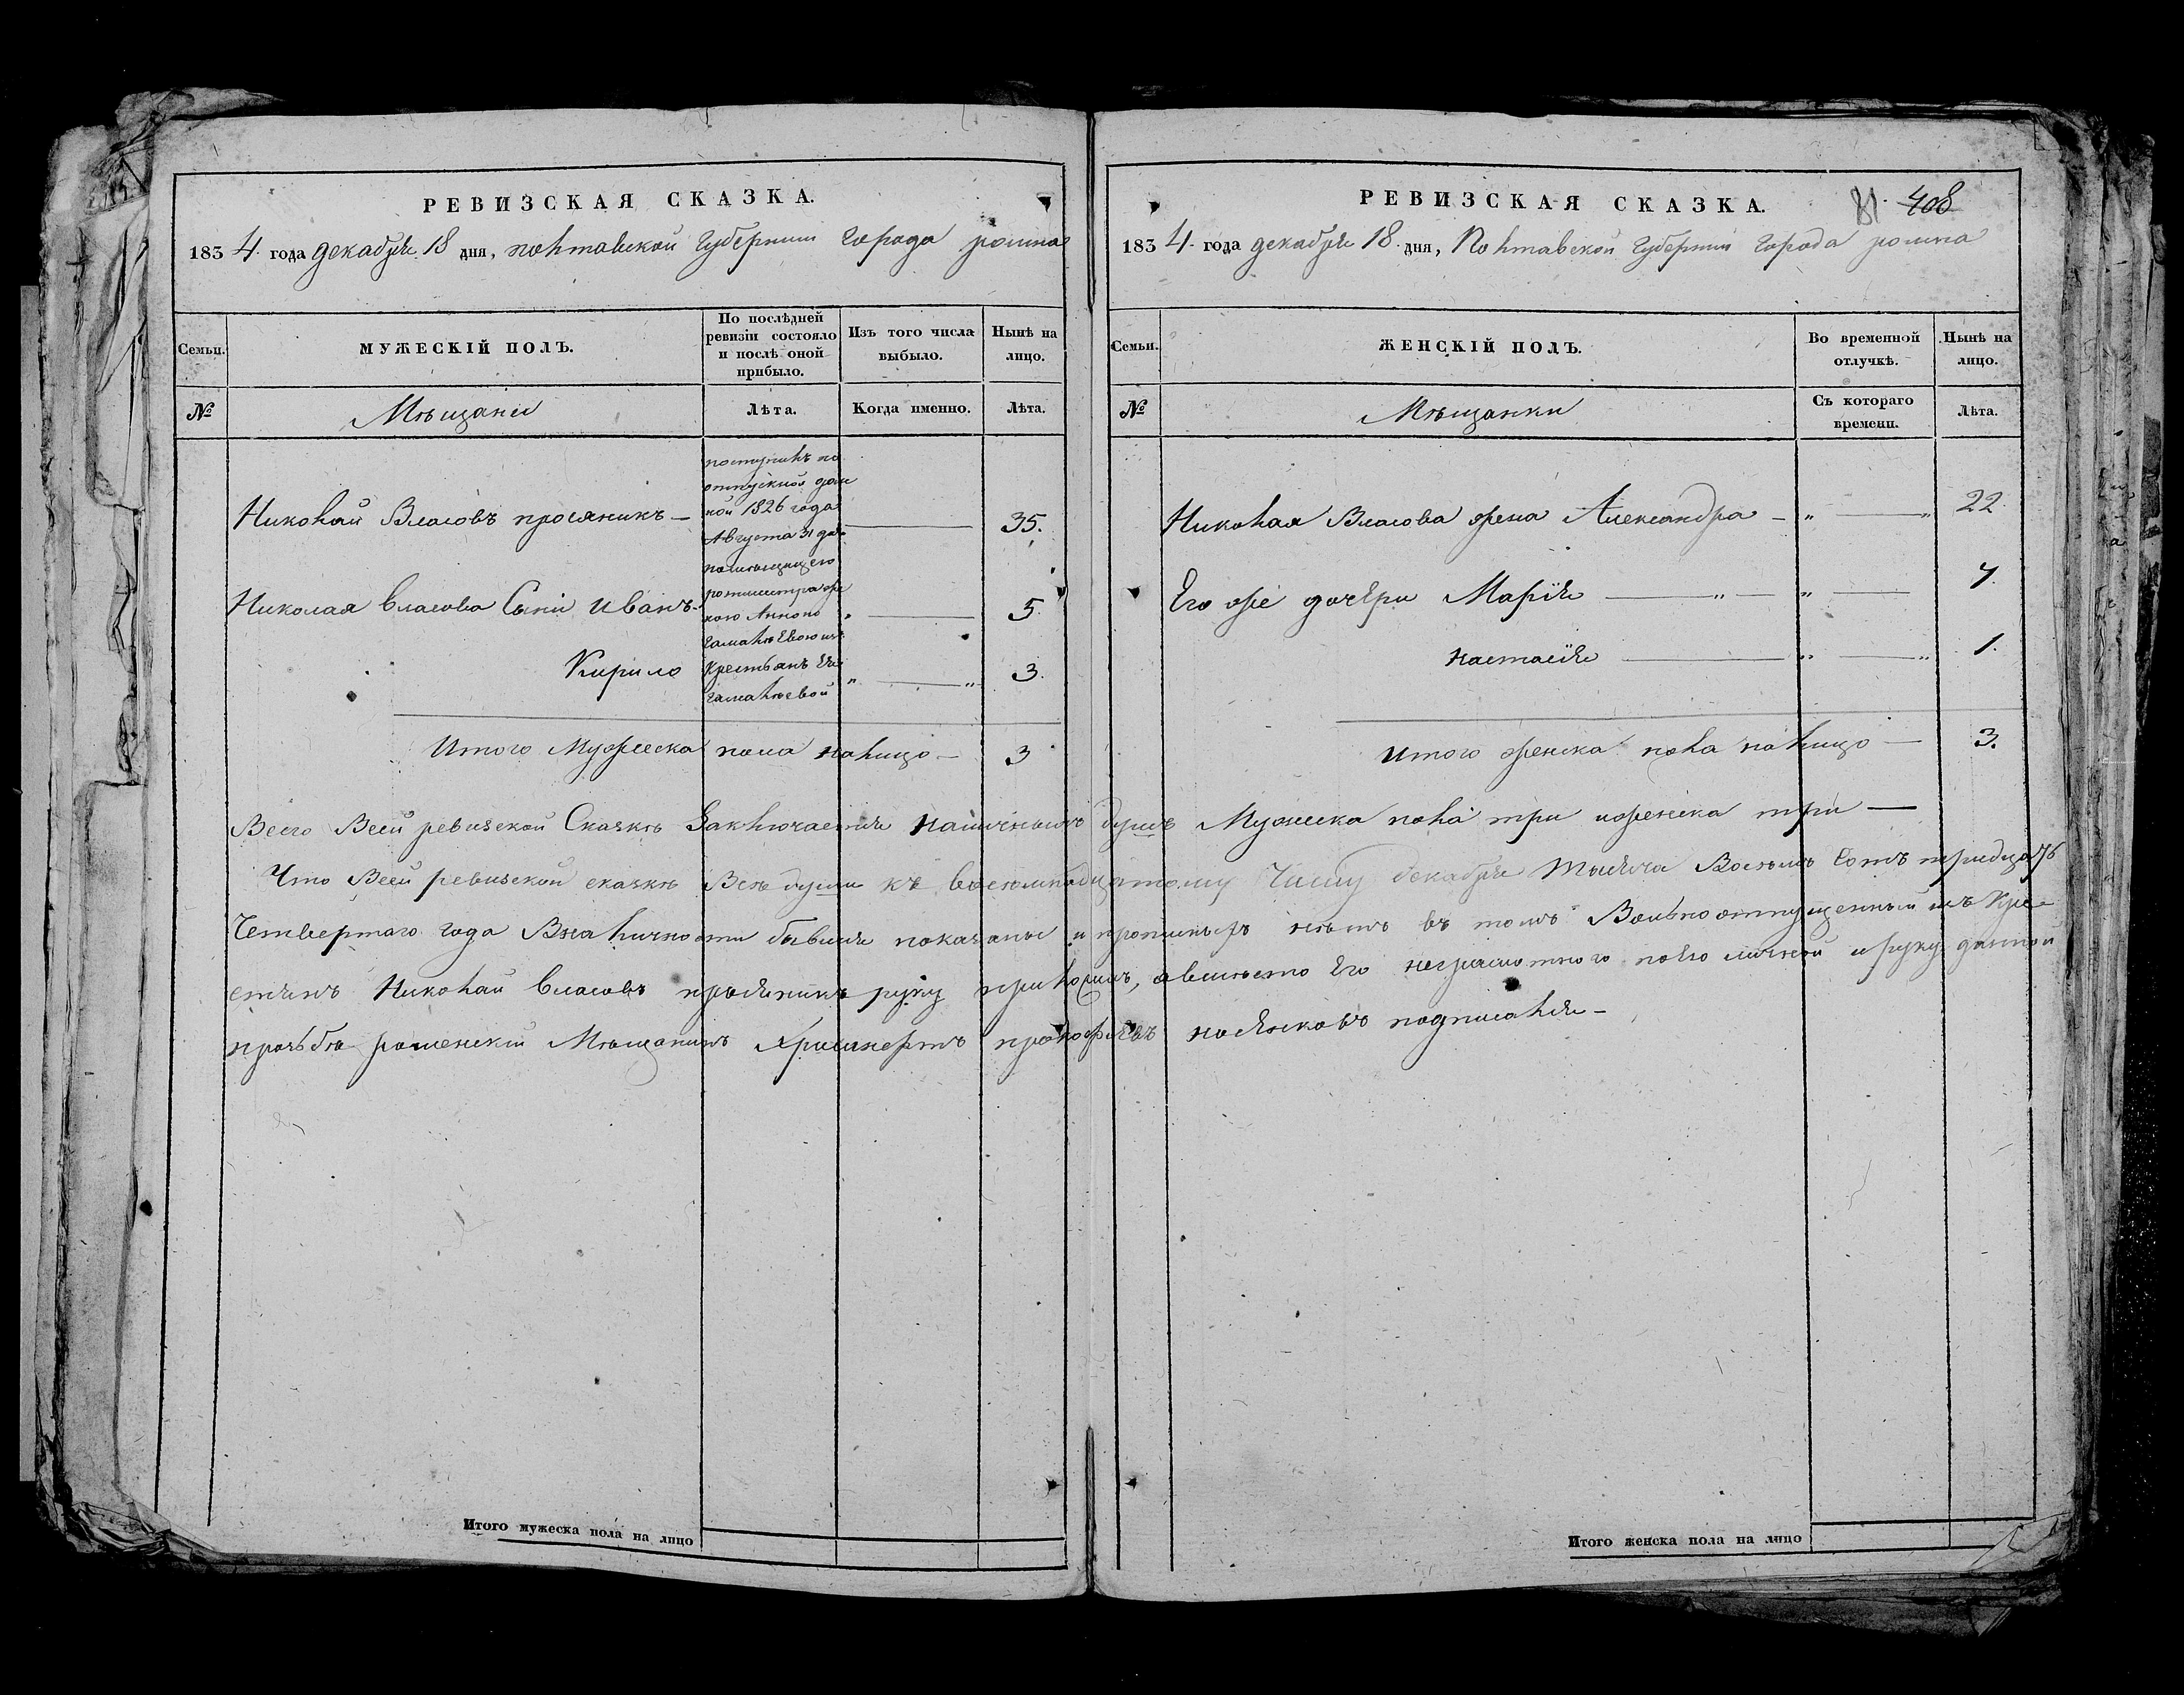 РЕВИЗСКАЯ СКАЗКА.
1834. года декабря 18 дня, полтавской губернии города ромна
Семьи.
МУЖЕСКІЙ ПОЛЪ.
По послѣдней ревизіи состояло и послѣ оной прибыло.
Изъ того числа выбыло.
Нынѣ на лицо.
№
Мѣщане
Лѣта.
Когда именно.
Лѣта.
поступилъ по
отпускной дан
ной 1826 года
Августа 31 да
помѣщицею
ротмистра же
ною Анною
Гамалѣевою изъ
крестьянъ Ея
Гамалѣевой
Николай Власовъ просяникъ — 35.
Николая власова Сыны Иванъ — 5.
Кирило " — " 3.
Итого Мужеска пола налицо — 3
РЕВИЗСКАЯ СКАЗКА. 81. 408
1834. года декабря 18. дня, Полтавской губерніи города ромна
Семьи.
ЖЕНСКІЙ ПОЛЪ.
Во временной отлучкѣ.
Нынѣ на лицо.
№
Мѣщанки
Съ котораго времени.
Лѣта.
Николая Власова жена Александра — " — " 22.
Его же дочери Марія — " — " — 7.
настасія — " — " 1.
Итого женска пола налицо — 3.
Всего Всей ревизской Сказкѣ Заключается наличныхъ душъ Мужеска пола три иженска три —
Что Всей ревизской сказкѣ Всѣ души къ восемнадцатому Числу декабря тысяча Восемь Сотъ тридцать
Четвертаго года Вналичности бывшія показаны и прописныхъ нѣтъ въ томъ Вольноотпущенный изъ Кре=
стянъ Николай власовъ просяникъ руку приложилъ, авмѣсто Его неграмотнаго поЕго личной ируку данной
прозьбѣ роменскій Мѣщанинъ прокофьевъ подписался —
Итого мужеска пола на лицо
Итого женска пола на лицо